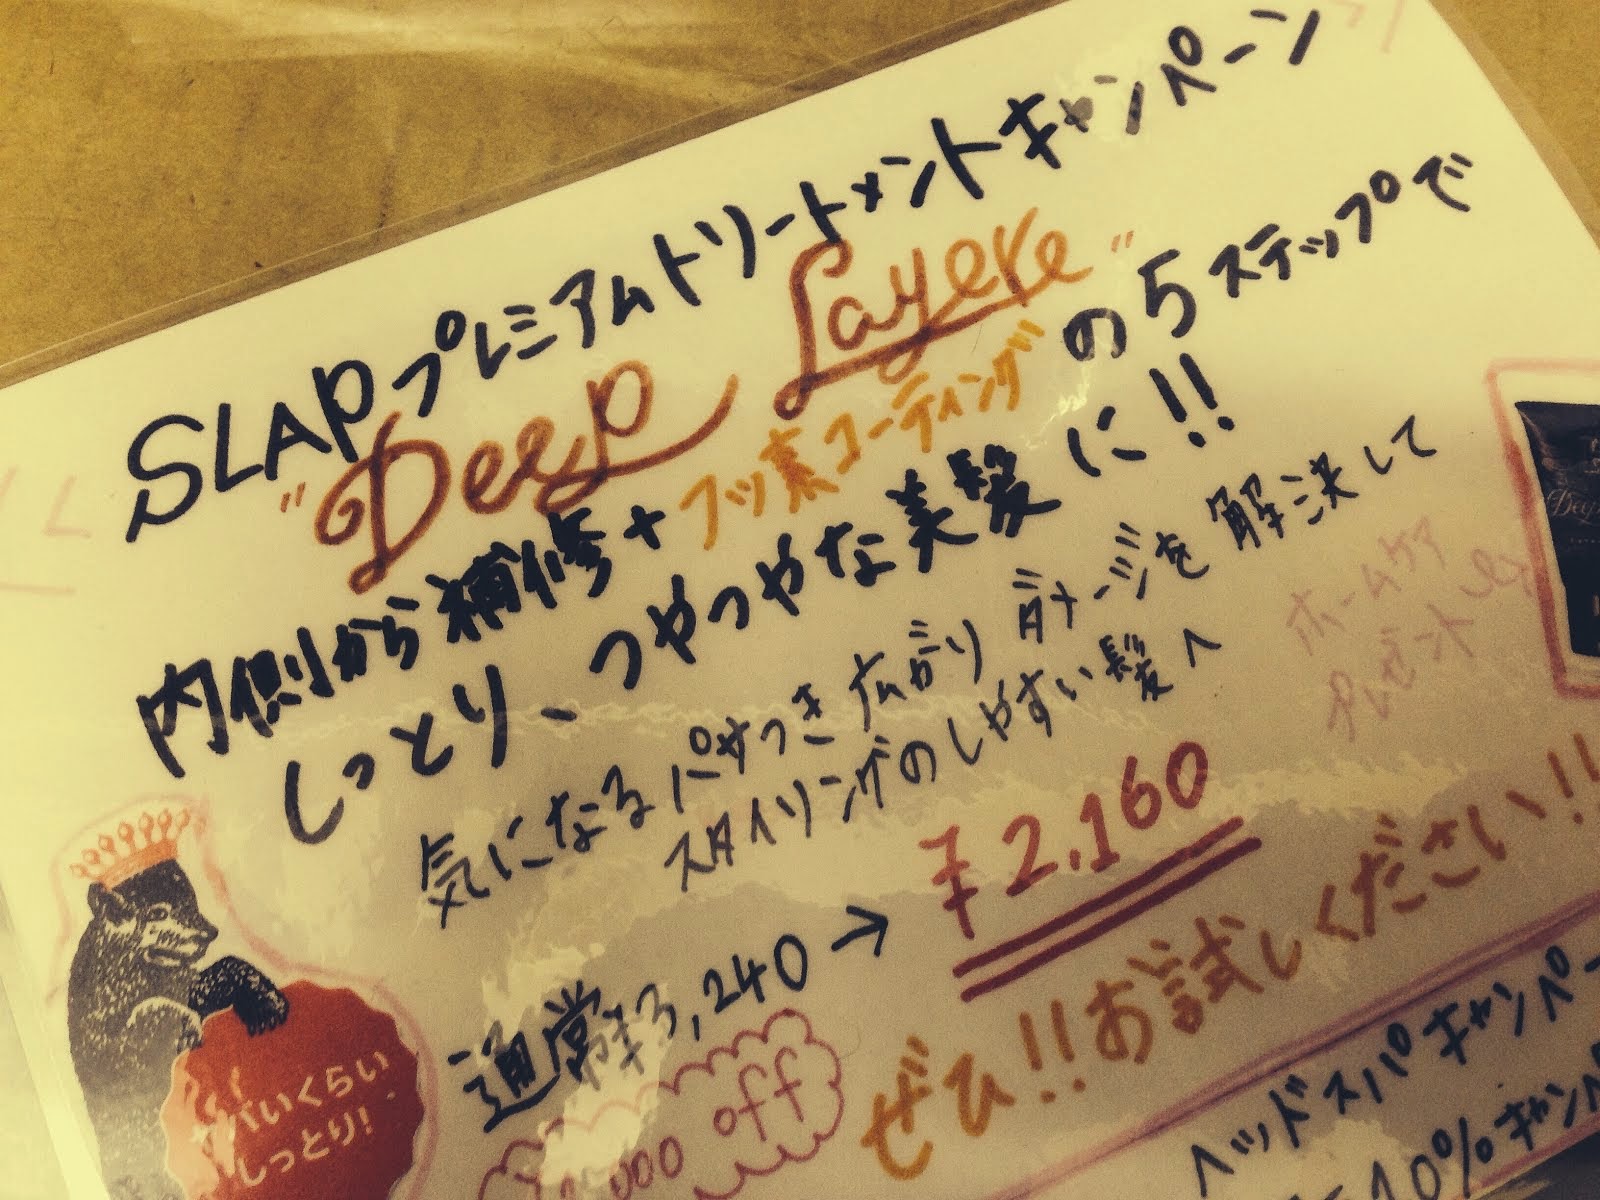 SLAPプレミアムトリートメントキャンペーン
"Deep Layere"の5ステップで
内側から補修+フッ素コーティング
しっとり、つやつやな美髪に!!
気になるパサつき 広がり ダメージを解決して
スタイリングのしやすい髪へ
ホームケア
プレゼント
通常¥3,240→¥2.160
000 off
ぜひ!!お試しください!!
ヤバいくらい
しっとり!
ヘッドスパキャンペー
10%
Deep